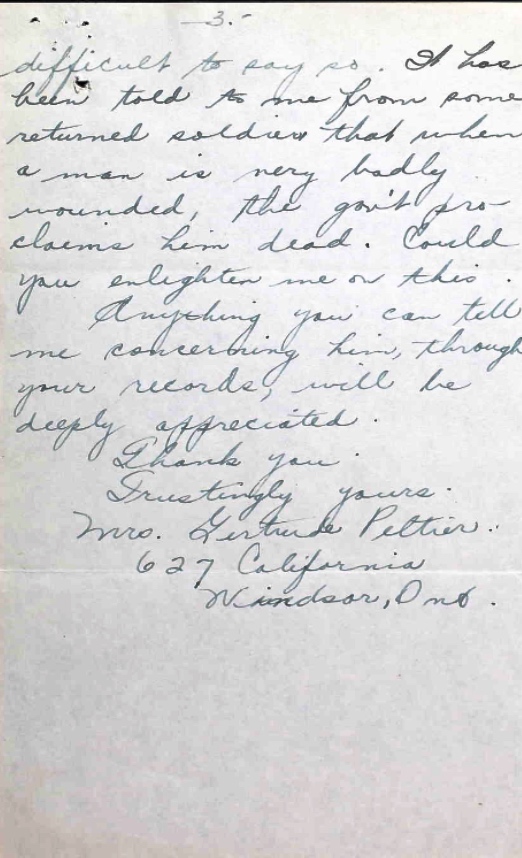 -3.-
difficult to say so. It has
been told to me from some
returned soldiers that when
a man is very badly
wounded, the gov't pro-
claims him dead. Could
you enlighten me on this.
Anything you can tell
me concerning him, through
your records, will be
deeply appreciated.
Thank you.
Trustingly yours.
Mrs. Gertrude Peltier.
627 California
Windsor, Ont.